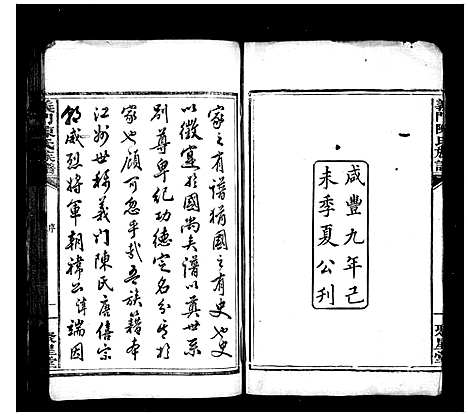 咸豐九年己
未季夏公刊
義門陳氏族譜
聚星堂
家之有譜猶國之有史也史
以徵寔於國尚矣譜以奠世系
別尊卑紀功德定名分其於
家也顧可忽乎哉吾族籍本
江州世稱義門陳氏唐僖宗
朝威烈將軍朝禕公諱端因
義門陳氏族譜
序
一
聚星堂